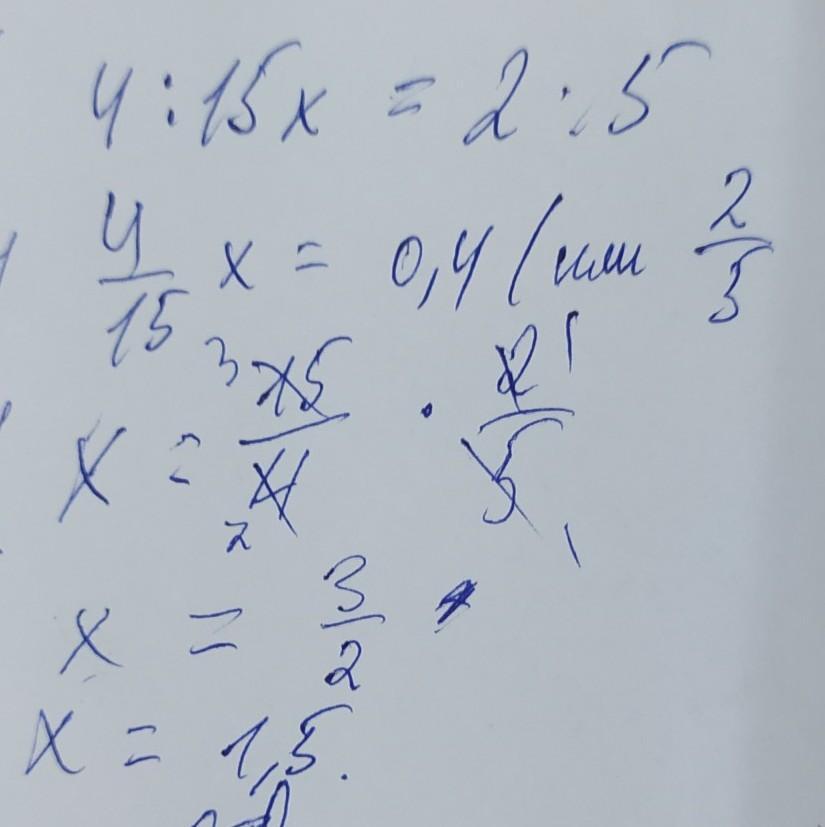 4 : 15x = 2 : 5
4/15 x = 0,4 (или 2/5
x = 3 15/4 2 · 2 1/5 1
x = 3/2
x = 1,5.